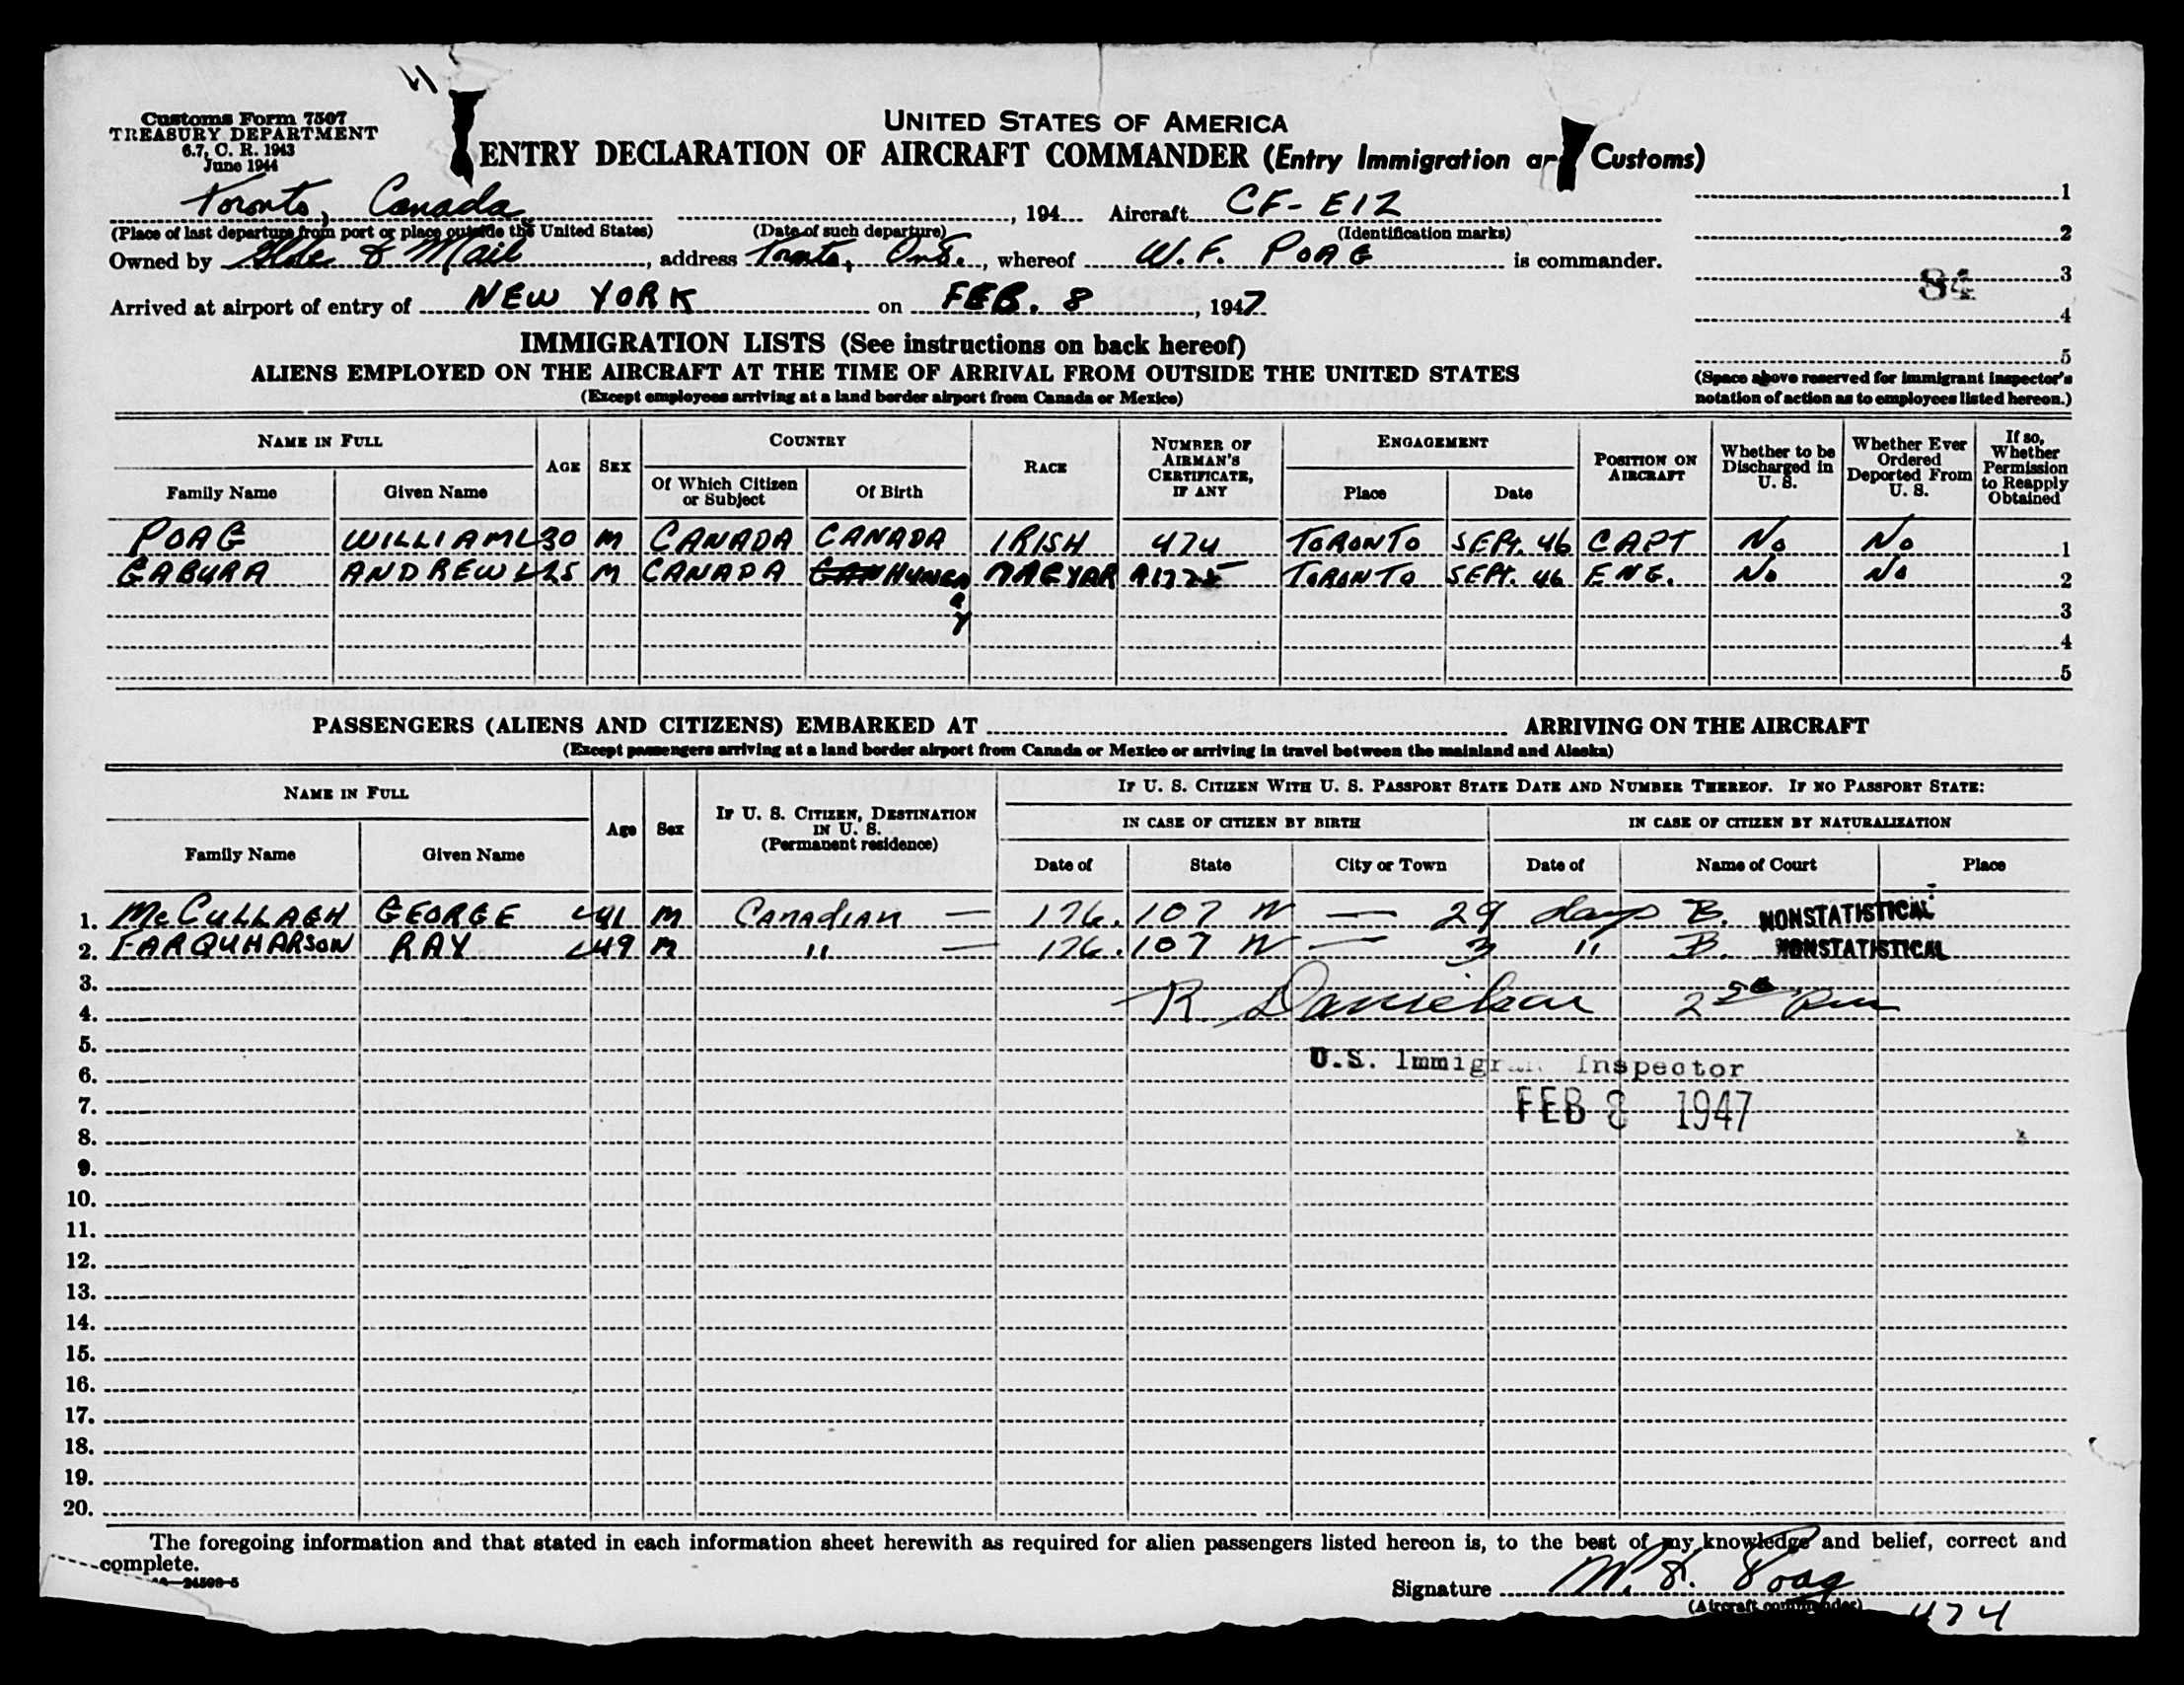 Customs Form 7507
TREASURY DEPARTMENT
6.7, C. R. 1943
June 1944
UNITED STATES OF AMERICA
ENTRY DECLARATION OF AIRCRAFT COMMANDER (Entry Immigration an Customs)
Toronto, Canada , 194 Aircraft CF-EIZ
(Place of last departure from port or place outside the United States) (Date of such departure) (Identification marks)
Owned by Globe & Mail, address Toronto, Ont., whereof W. F. POAG is commander.
Arrived at airport of entry of NEW YORK on FEB. 8, 1947
1
2
3
84
4
5
(Space above reserved for immigrant inspector's
notation of action as to employees listed hereon.)
IMMIGRATION LISTS (See instructions on back hereof)
ALIENS EMPLOYED ON THE AIRCRAFT AT THE TIME OF ARRIVAL FROM OUTSIDE THE UNITED STATES
(Except employees arriving at a land border airport from Canada or Mexico)
NAME IN FULL AGE SEX COUNTRY RACE NUMBER OF AIRMAN'S CERTIFICATE, IF ANY ENGAGEMENT POSITION ON AIRCRAFT Whether to be Discharged in U. S. Whether Ever Ordered Deported From U. S. If so, Whether Permission to Reapply Obtained
Family Name Given Name Of Which Citizen or Subject Of Birth Place Date
POAG WILLIAM 30 M CANADA CANADA IRISH 474 TORONTO SEPT. 46 CAPT No No 1
GABURA ANDREW 25 M CANADA HUNGARY MAGYAR TORONTO SEPT. 46 ENG. No No 2
3
4
5
PASSENGERS (ALIENS AND CITIZENS) EMBARKED AT ARRIVING ON THE AIRCRAFT
(Except passengers arriving at a land border airport from Canada or Mexico or arriving in travel between the mainland and Alaska)
NAME IN FULL Age Sex IF U. S. CITIZEN, DESTINATION IN U. S. (Permanent residence) IF U. S. CITIZEN WITH U. S. PASSPORT STATE DATE AND NUMBER THEREOF. IF NO PASSPORT STATE:
IN CASE OF CITIZEN BY BIRTH IN CASE OF CITIZEN BY NATURALIZATION
Family Name Given Name Date of State City or Town Date of Name of Court Place
1. McCULLAGH GEORGE 41 M CANADIAN — 176.107 N — 29 days B. NONSTATISTICAL
2. FARQUHARSON RAY 49 M " — 176.107 N — 3 " B. NONSTATISTICAL
3.
4. R. Danielson 2 50 Pm
5.
6. U.S. Immigr Inspector
7. FEB 8 1947
8.
9.
10.
11.
12.
13.
14.
15.
16.
17.
18.
19.
20.
The foregoing information and that stated in each information sheet herewith as required for alien passengers listed hereon is, to the best of my knowledge and belief, correct and
complete.
24598-5
Signature W. F. Poag
(Aircraft commander)
474